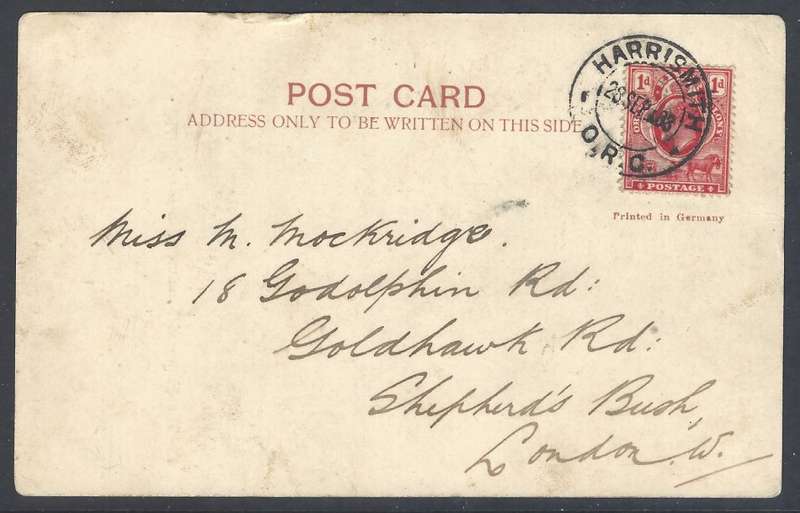 POST CARD
ADDRESS ONLY TO BE WRITTEN ON THIS SIDE
HARRISMITH
O.R.C.
1d 1d
POSTAGE
Printed in Germany
Miss M. Mockridge.
18 Godolphin Rd:
Goldhawk Rd:
Shepherd's Bush,
London. W.